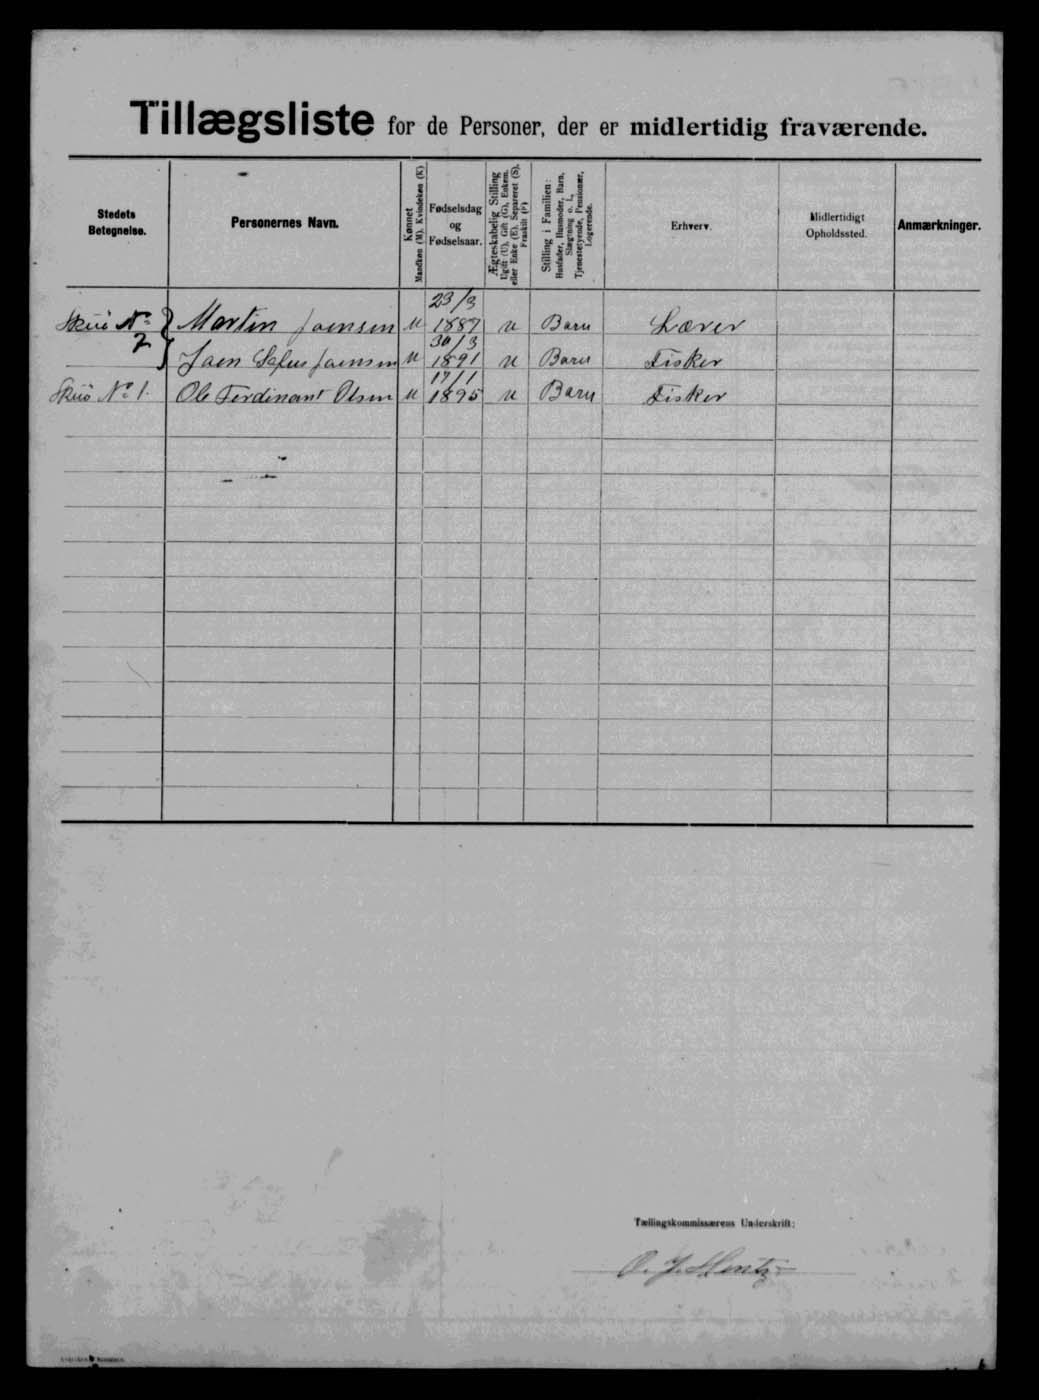 Tillægsliste for de Personer, der er midlertidig fraværende.
Stedets Betegnelse.
Personernes Navn.
Kønnet Mandkøn (M). Kvindekøn (K)
Fødselsdag og Fødselsaar.
Ægteskabelig Stilling Ugift (U), Gift (G), Enkem. eller Enke (E), Separeret (S), Fraskilt (F)
Stilling i Familien: Husfader, Husmoder, Barn, Slægtning o. l., Tjenestetyende, Pensionær, Logerende.
Erhverv.
Midlertidigt Opholdssted.
Anmærkninger.
Skuö No 2 Martin Joensen M 23/3 1887 U Barn Lærer
Joen Joensen M 30/3 1891 U Barn Fisker
Skuö No 1. Ole Ferdinant Olsen M 17/1 1895 U Barn Fisker
Tællingskommissærens Underskrift: